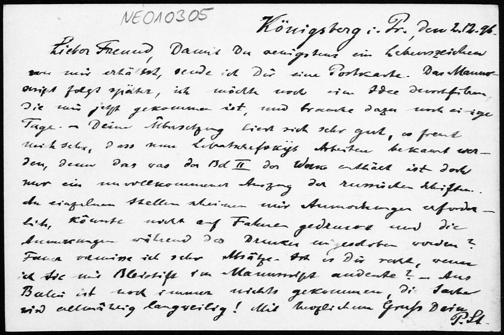 NEO10305
Königsberg i. Pr., den 2.12.96.
Lieber Freund, Damit Du wenigstens ein Lebenszeichen
von mir erhältst, sende ich Dir eine Postkarte. Das Manu-
script folgt später, ich möchte noch eine Idee durchführen,
die mir jetzt gekommen ist, und brauche dazu noch einige
Tage. – Deine Übersetzung liest sich sehr gut, es freut
mich sehr, dass nun Arbeiten bekannt wer-
den, denn das was der Bd II der enthält ist doch
nur ein unvollkommener Auszug der russischen Schriften.
An einzelnen Stellen scheinen mir Anmerkungen erforder-
lich, könnte nicht auf Fahnen gedruckt und die
Anmerkungen während des Druckes eingeschoben werden?
Ferner vermisse ich sehr Absätze. Ist es Dir recht, wenn
ich sie mit Bleistift im Manuscript andeute? – Aus
Berlin ist noch immer nichts gekommen, die Sache
wird allmählig langweilig! Mit herzlichem Gruss Dein
P. St.